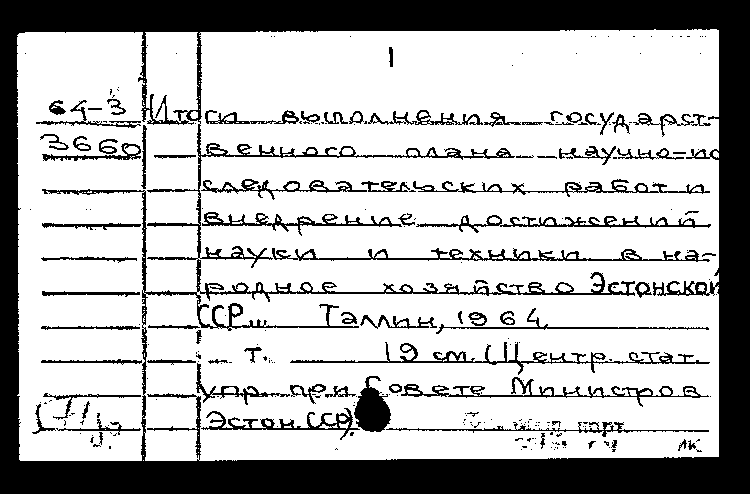 1
64-3 Итоги выполнения государст-
3660 венного плана научно-ис
следовательских работ и
внедрение достижений
науки и техники в на-
родное хозяйство Эстонской
ССР... Таллин, 1964.
т. 19 см. (Центр. стат.
упр. при Совете Министров
Эстон. ССР).